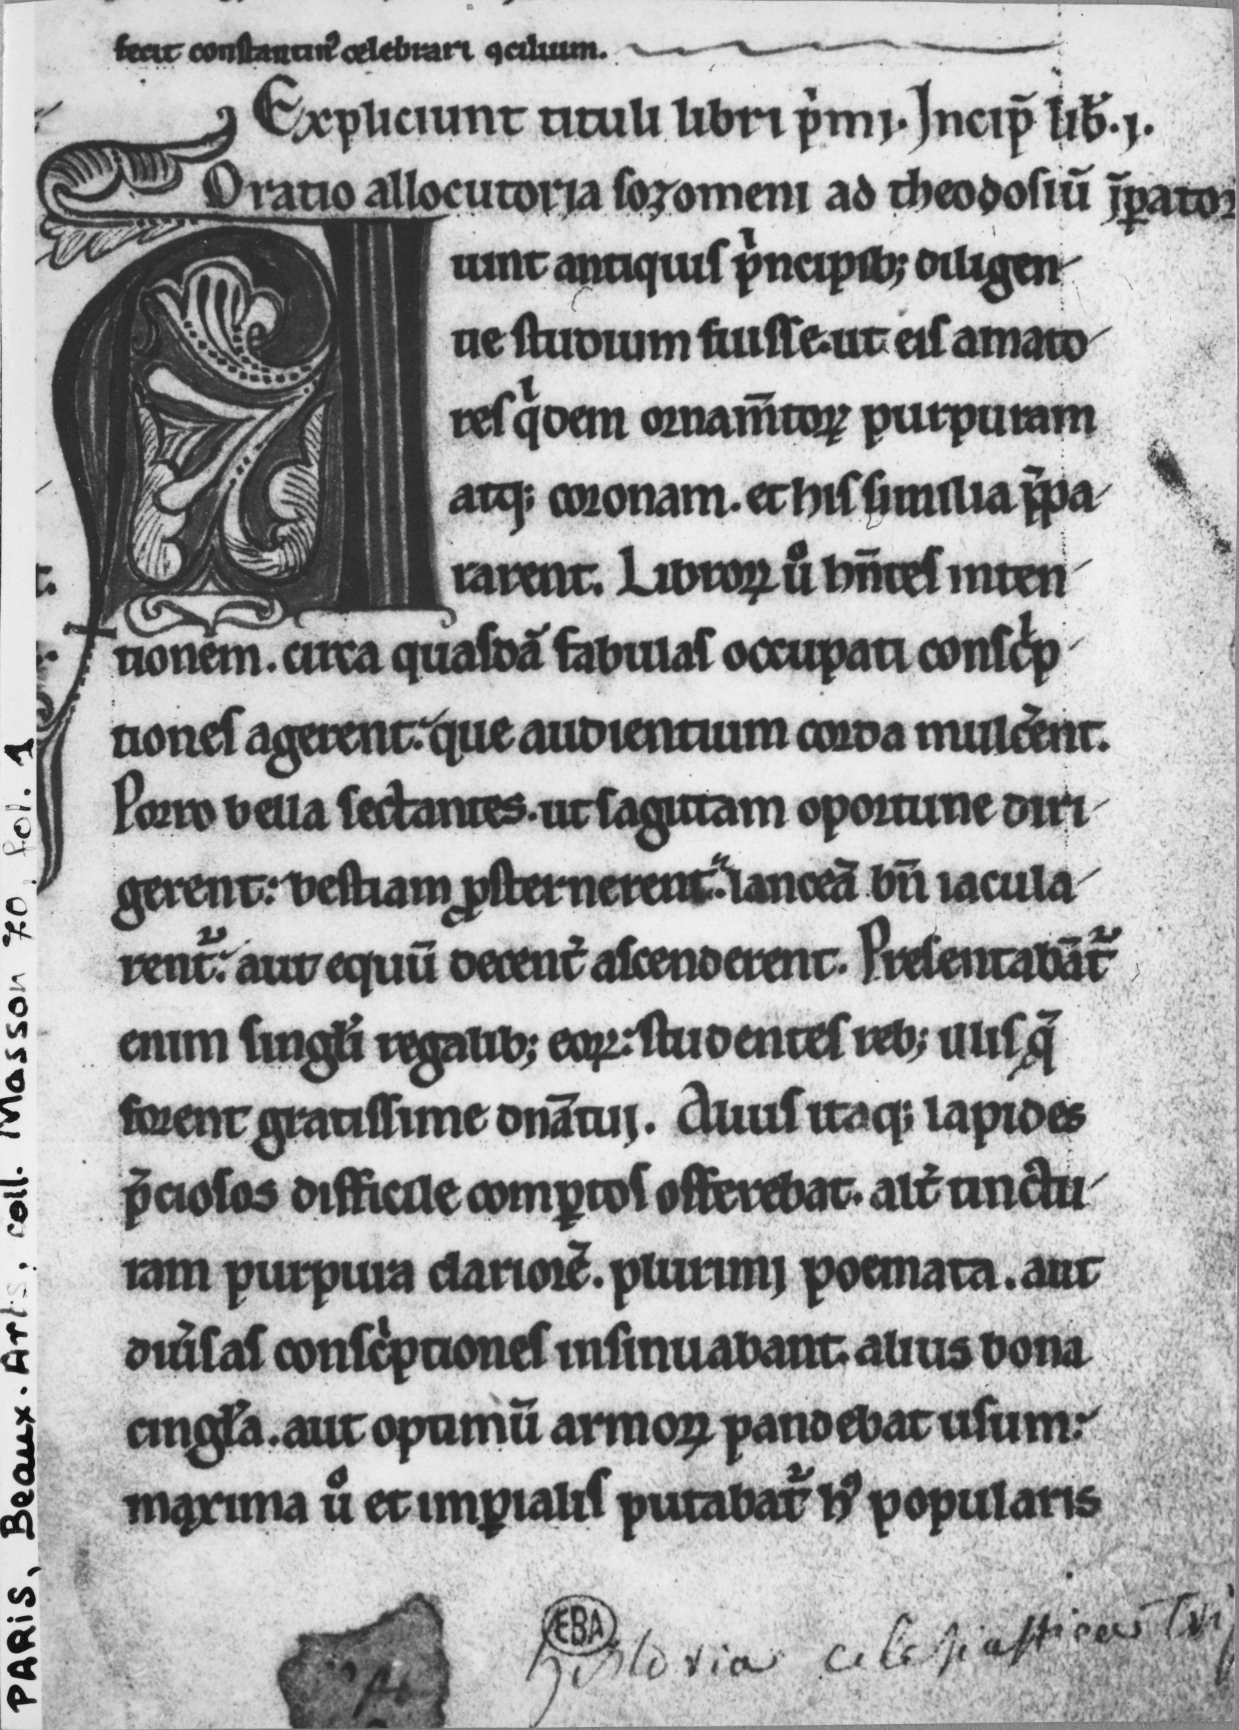 fecit constantin᾽ celebrari ꝯcilium.
Expliciunt tituli libri p̍mi. Incip̄ lib̄. j.
Oratio allocutoria sozomeni ad theodosiū īꝑator
Aiunt antiquis p̍ncipib; diligen
tie studium fuisse. ut eis amato
res q̍dem ornam̄toꝝ purpuram
atq; coronam. et his similia p̄pa
rarent. Libroꝝ ů hn̄tes inten
tionem. circa quasdā fabulas occupati consc̍p
tiones agerent. que audientium corda mulc̄ent.
Porro bella sectantes. ut sagittam oportune diri
gerent: bestiam ꝓsternerent. lanceā bn̄ iacula
rent᷑. aut equū decent̄ ascenderent. Presentabāt᷑
enim singl̄i regalib; eoꝝ: studentes reb; illis q̄
forent gratissime dn̄atui. Diuus itaq; lapides
p̄ciosos difficile comꝑtos offerebat. alt̄ tinctu
ram purpura clariorē. plurimi poemata. aut
diūsas consc̍ptiones insinuabant. alius bona
cingl̄a. aut optimū armoꝝ pandebat usum:
maxima ů et imꝑialis putabat᷑ h᾽ popularis
EBA
historia eclesiastica
PARIS, Beaux-Arts, coll. Masson 70, fol. 1